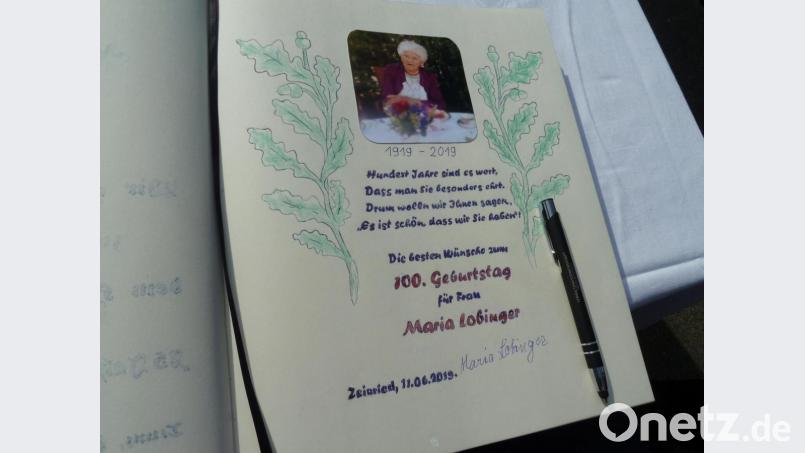 1919 - 2019
Hundert Jahre sind es wert,
Dass man sie besonders ehrt.
Drum wolln wir Ihnen sagen,
„Es ist schön dass wir Sie haben“!
Die besten Wünsche zum
100. Geburtstag
für Frau
Maria Lobinger
Maria Lobinger
Zeinried, 11.06.2019.
Onetz.de